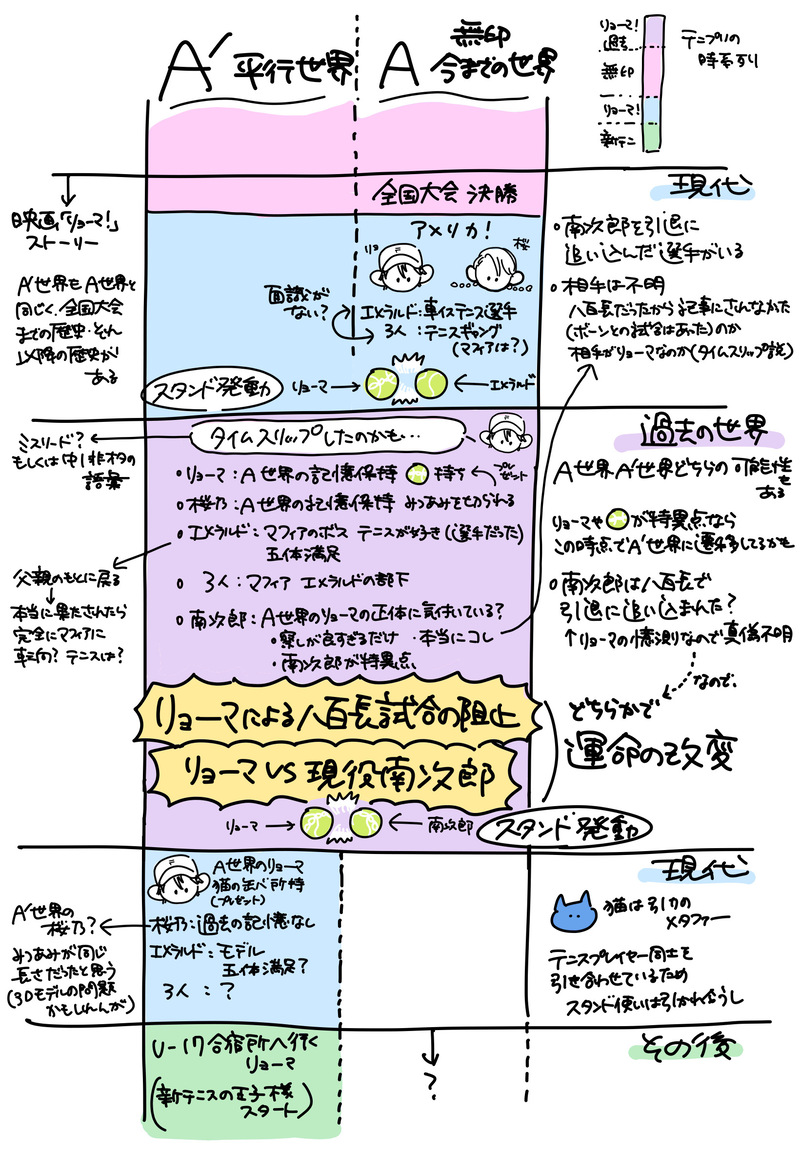 A′ 平行世界
A 無印
今までの世界
リョーマ!
過去
無印
リョーマ!
新テニ
テニプリの
時系列
現代
全国大会 決勝
映画「リョーマ!」
ストーリー
A′世界もA世界と
同じく、全国大会
までの歴史・それ
以降の歴史が
ある
アメリカ!
リョ
桜
面識が
ない?
エメラルド:車イステニス選手
3人:テニスギャング
(マフィアは?)
スタンド発動
リョーマ→
←エメラルド
・南次郎を引退に
追い込んだ選手がいる
・相手は不明
八百長だったから記事にされなかた
(ボーンとの試合はあった)のか
相手がリョーマなのか(タイムスリップ説)
過去の世界
タイムスリップしたのかも…
ミスリード?
もしくは中1非オタの
語彙
・リョーマ:A世界の記憶保持
持ち
プレゼント
・桜乃:A世界の記憶保持 みつあみをせめられる
・エメラルド:マフィアのボス テニスが好き(選手だった)
五体満足
・3人:マフィア エメラルドの部下
・南次郎:A世界のリョーマの正体に気付いている?
・察しが良すぎるだけ ・本当にコレ
・南次郎が特異点、
父親のもとに戻る
↓
本当に果たされたら
完全にマフィアに
転向? テニスは?
A世界A′世界どちらの可能性
も
ある
リョーマや
が特異点なら
この時点でA′世界に遷移してるかも
・南次郎は八百長で
引退に追い込まれた?
↑リョーマの憶測なので真偽不明
なので、
どちらかで
運命の改変
リョーマによる八百長試合の阻止
リョーマ VS 現役南次郎
リョーマ→
←南次郎
スタンド発動
現代
A世界のリョーマ
猫の缶バ所持
(プレゼント)
桜乃:過去の記憶なし
エメラルド:モデル
五体満足?
3人:?
A′世界の
桜乃?
みつあみが同じ
長さだったと思う
(3Dモデルの問題
かもしれんが)
猫は引力の
メタファー
テニスプレイヤー同士を
引き合わせているため
スタンド使いは引かれ合うし
その後
U-17合宿所へ行く
リョーマ
(新テニスの王子様
スタート)
↓
?